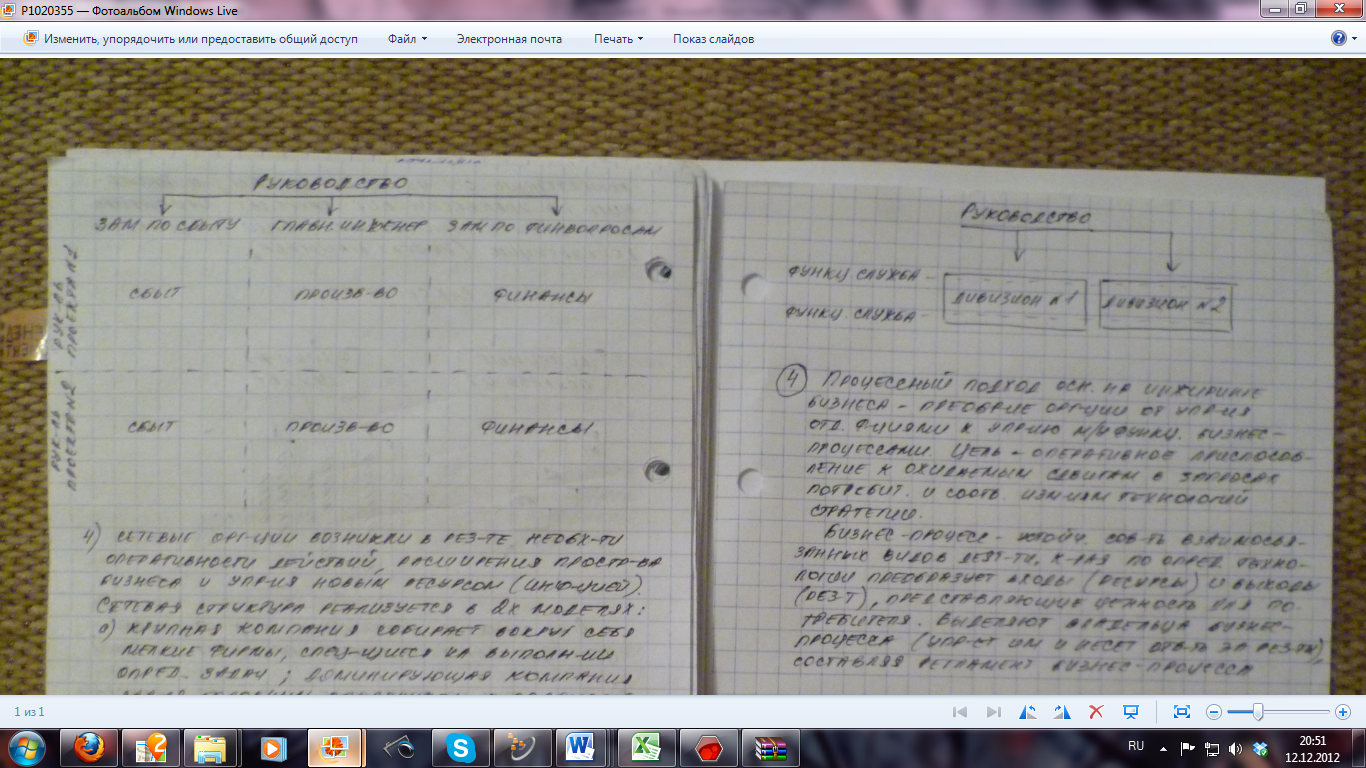 P1020355 — Фотоальбом Windows Live
Изменить, упорядочить или предоставить общий доступ Файл Электронная почта Печать Показ слайдов
РУКОВОДСТВО
ЗАМ ПО СБЫТУ ГЛАВН. ИНЖЕНЕР ЗАМ ПО ФИНВОПРОСАМ
РУК-ЛЬ
ПРОЕКТА №1
СБЫТ ПРОИЗВ-ВО ФИНАНСЫ
РУК-ЛЬ
ПРОЕКТА №2
СБЫТ ПРОИЗВ-ВО ФИНАНСЫ
4) СЕТЕВЫЕ ОРГ-ЦИИ ВОЗНИКЛИ В РЕЗ-ТЕ НЕОБХ-ТИ
ОПЕРАТИВНОСТИ ДЕЙСТВИЙ, РАСШИРЕНИЯ ПРОСТР-ВА
БИЗНЕСА И УПР-ИЯ НОВЫМ РЕСУРСОМ (ИНФ-ЦИЕЙ).
СЕТЕВАЯ СТРУКТУРА РЕАЛИЗУЕТСЯ В 2Х МОДЕЛЯХ:
а) КРУПНАЯ КОМПАНИЯ СОБИРАЕТ ВОКРУГ СЕБЯ
МЕЛКИЕ ФИРМЫ, СПЕЦ-ЩИЕСЯ НА ВЫПОЛН-ИИ
ОПРЕД. ЗАДАЧ; ДОМИНИРУЮЩАЯ КОМПАНИЯ
РУКОВОДСТВО
ФУНКЦ. СЛУЖБА -
ФУНКЦ. СЛУЖБА -
ДИВИЗИОН №1 ДИВИЗИОН №2
4 ПРОЦЕССНЫЙ ПОДХОД ОСН. НА ИНЖИРИНГЕ
БИЗНЕСА - ПРЕОБР-ИЕ ОРГ-ЦИИ ОТ УПР-ИЯ
ОТД. Ф-ЦИЯМИ К УПР-ИЮ М/И ФУНКЦ. БИЗНЕС-
ПРОЦЕССАМИ. ЦЕЛЬ - ОПЕРАТИВНОЕ ПРИСПОСОБ-
ЛЕНИЕ К ОЖИДАЕМЫМ СДВИГАМ В ЗАПРОСАХ
ПОТРЕБИТ. И СООТВ. ИЗМ-ИЯМ ТЕХНОЛОГИЙ
СТРАТЕГИИ.
БИЗНЕС-ПРОЦЕСС - УСТОЙЧ. СОВ-ТЬ ВЗАИМОСВЯ-
ЗАННЫХ ВИДОВ ДЕЯТ-ТИ, К-РАЯ ПО ОПРЕД. ТЕХНО-
ЛОГИИ ПРЕОБРАЗУЕТ ВХОДЫ (РЕСУРСЫ) И ВЫХОДЫ
(РЕЗ-Т), ПРЕДСТАВЛЯЮЩИЕ ЦЕННОСТЬ ДЛЯ ПО-
ТРЕБИТЕЛЯ. ВЫДЕЛЯЮТ ВЛАДЕЛЬЦА БИЗНЕС-
ПРОЦЕССА (УПР-ЕТ ИМ И НЕСЕТ ОТВ-ТЬ ЗА РЕЗ-ТЫ),
СОСТАВЛЯЯ РЕГЛАМЕНТ БИЗНЕС-ПРОЦЕССА
1 из 1
RU
20:51
12.12.2012